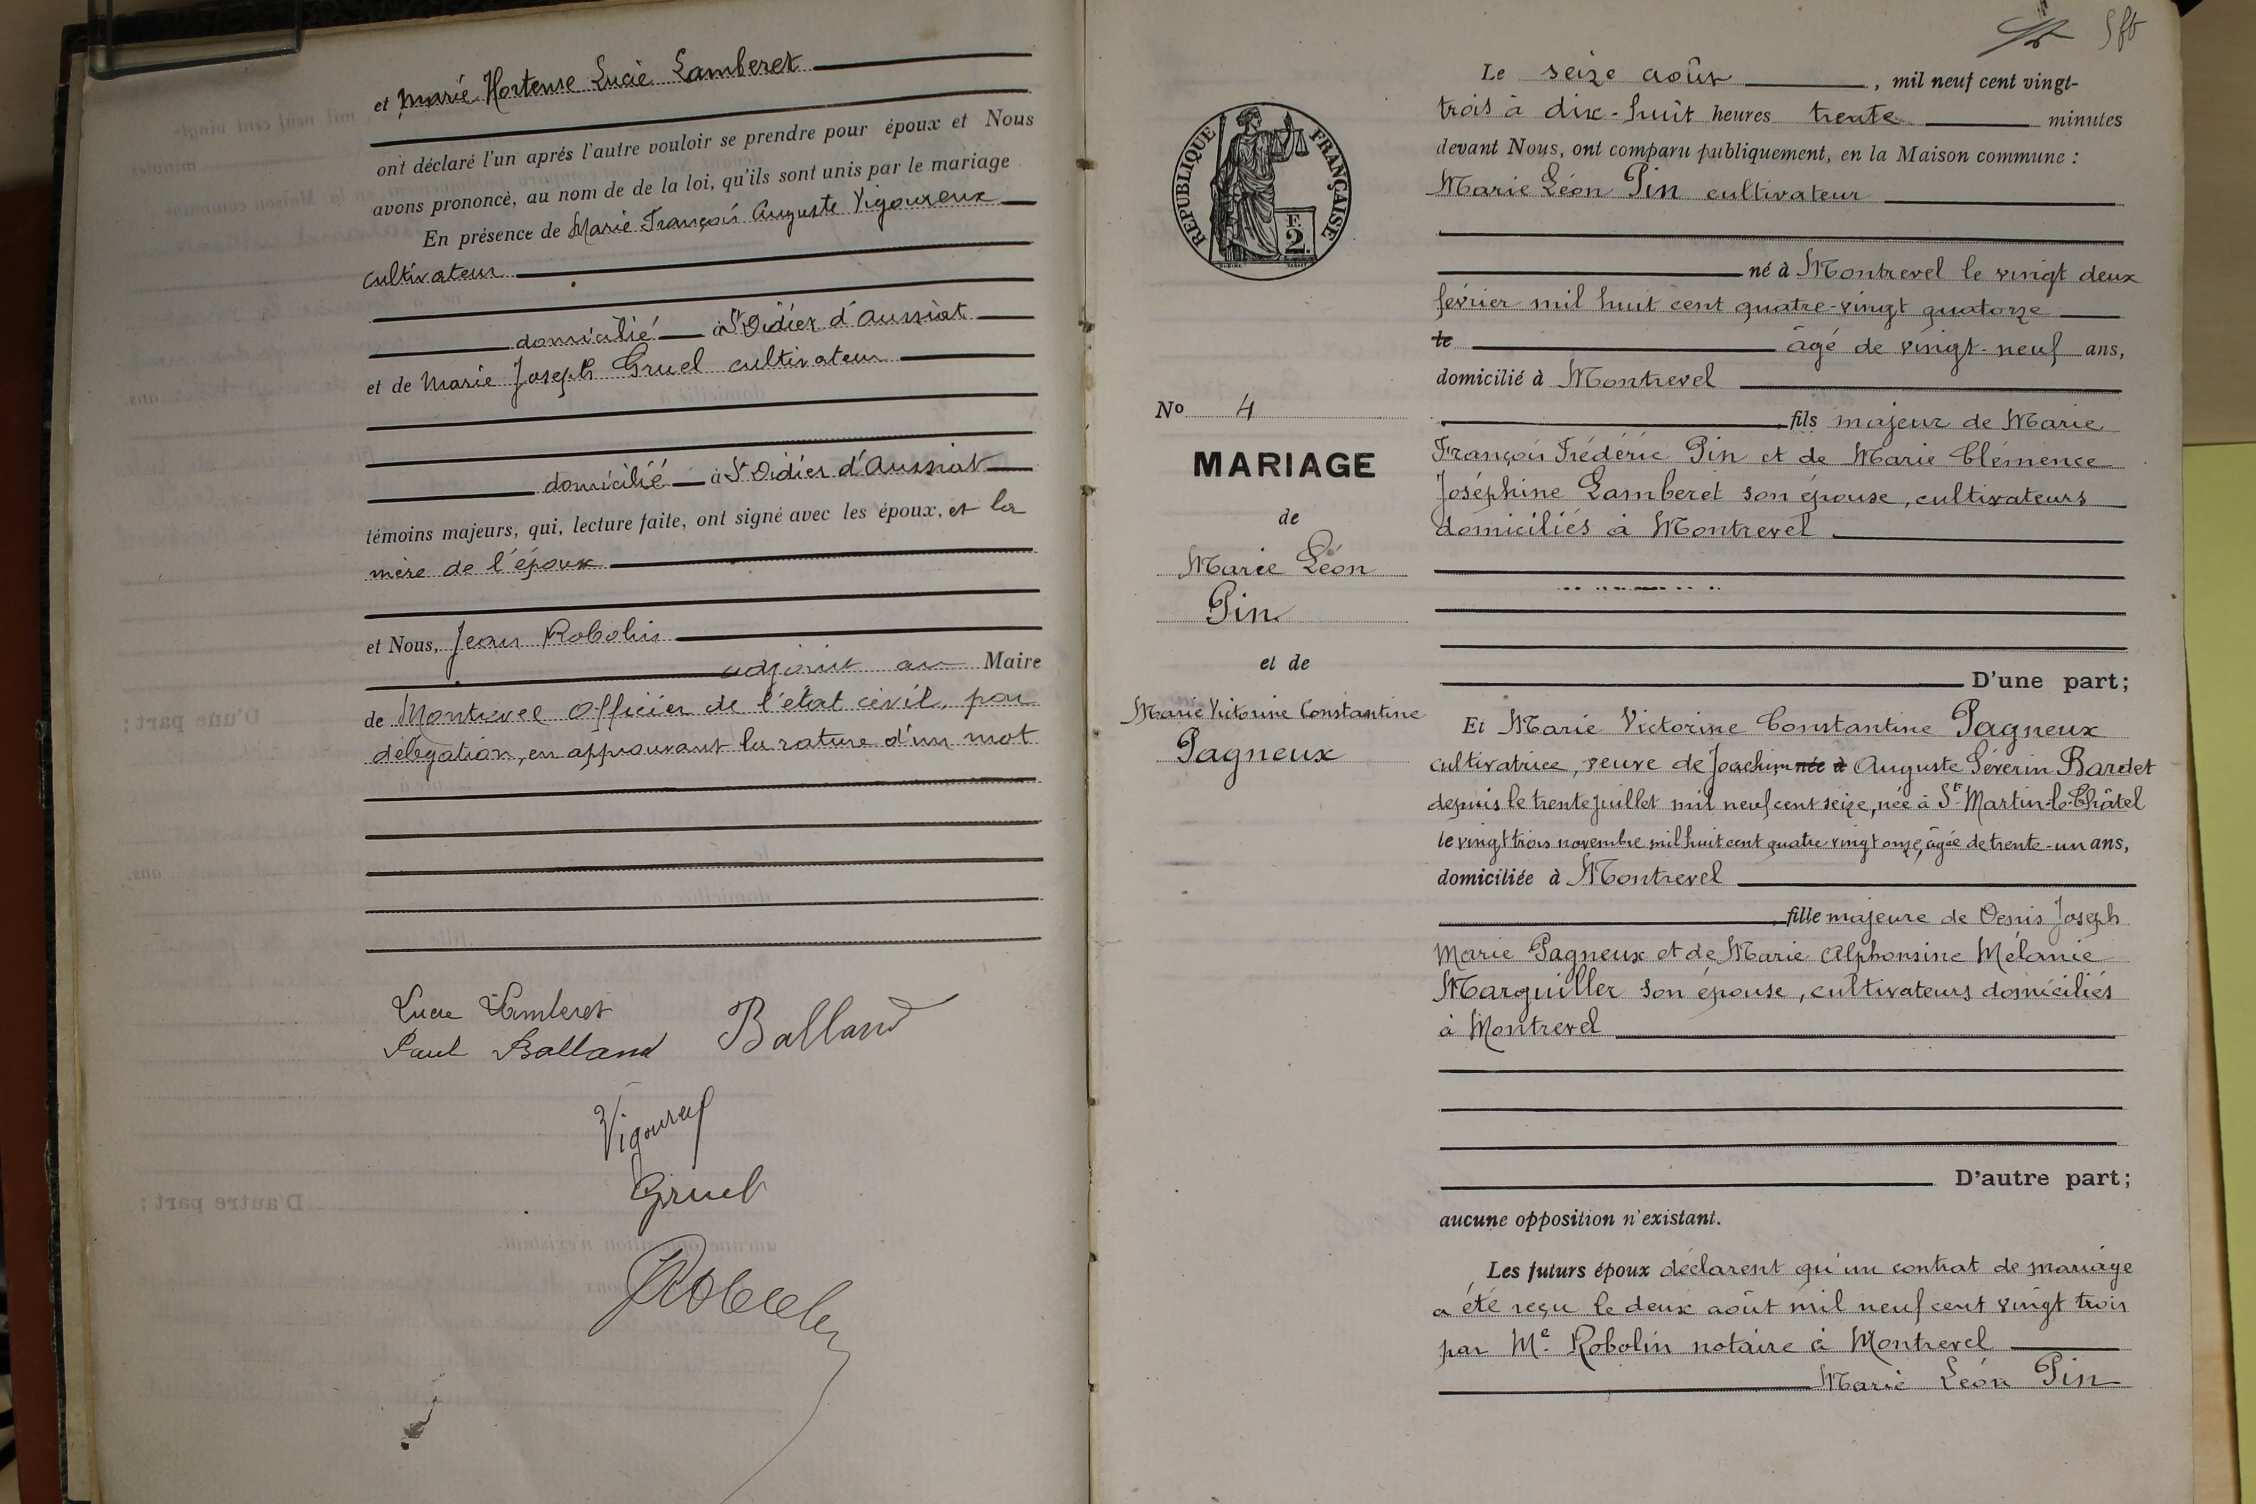 et Marie Hortense Lucie Lamberet
ont déclaré l'un aprés l'autre vouloir se prendre pour époux et Nous
avons prononcè, au nom de de la loi, qu'ils sont unis par le mariage
En présence de Marie François Auguste Vigoureux
cultivateur
domicilié à St Didier d'Aussiat
et de Marie Joseph Gruel cultivateur
domicilié à St Didier d'Aussiat
témoins majeurs, qui, lecture faite, ont signé avec les époux, et la
mère de l'époux
et Nous, Jean Robolin
adjoint au Maire
de Montrevel Officier de l'état civil, par
délégation, en approuvant la rature d'un mot
Lucie Lamberet
Paul Balland Balland
Vigoureux
Gruel
Robolin
Le seize août, mil neuf cent vingt-
trois à dix-huit heures trente minutes
devant Nous, ont comparu publiquement, en la Maison commune :
Marie Léon Pin cultivateur
né à Montrevel le vingt deux
février mil huit cent quatre-vingt quatorze
le âgé de vingt-neuf ans,
domicilié à Montrevel
fils majeur de Marie
François Frédéric Pin et de Marie Clémence
Joséphine Lamberet son épouse, cultivateurs
domiciliés à Montrevel
D'une part;
RÉPUBLIQUE FRANÇAISE
F.
2.
No 4
MARIAGE
de
Marie Léon
Pin
et de
Marie Victorine Constantine
Pagneux
Et Marie Victorine Constantine Pagneux
cultivatrice, veuve de Joachim née à Auguste Séverin Bardet
depuis le trente juillet mil neuf cent seize, née à St Martin-le-Châtel
le vingt trois novembre mil huit cent quatre vingt onze, âgée de trente-un ans,
domiciliée à Montrevel
fille majeure de Denis Joseph
Marie Pagneux et de Marie Alphonsine Mélanie
Marguiller son épouse, cultivateurs domiciliés
à Montrevel
D'autre part;
aucune opposition n'existant.
Les futurs époux déclarent qu'un contrat de mariage
a été reçu le deux août mil neuf cent vingt trois
par Me Robolin notaire à Montrevel
Marie Léon Pin